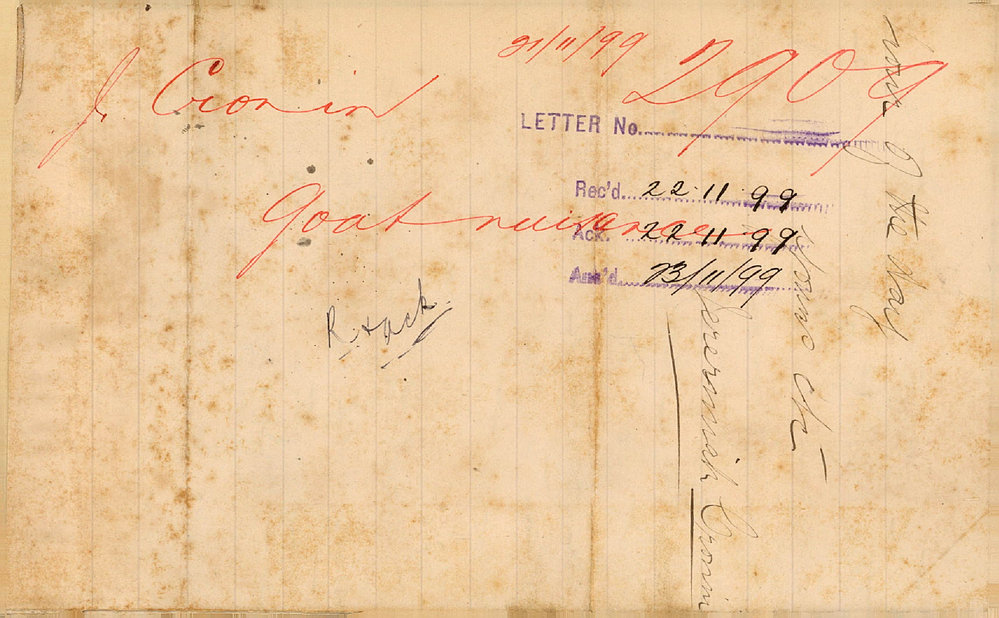 J. Cronin
21/11/99
2909
LETTER No.
Rec'd. 22.11.99
goat nuisance
Ack. 22 11 99
Ans'd. 23/11/99
R. & ack.
of the day
yours etc
Jeremiah Cronin